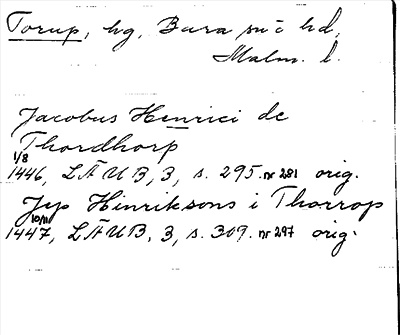 Torup, hg, Bara sn o hd,
Malm. l.
Jacobus Henrici de
Thordhorp
1/8
1446, LÄUB, 3, s. 295. nr 281 orig.
Jyp Hinriksons i Thorrop
1447, LÄUB. 3, s. 309. nr 297 orig.